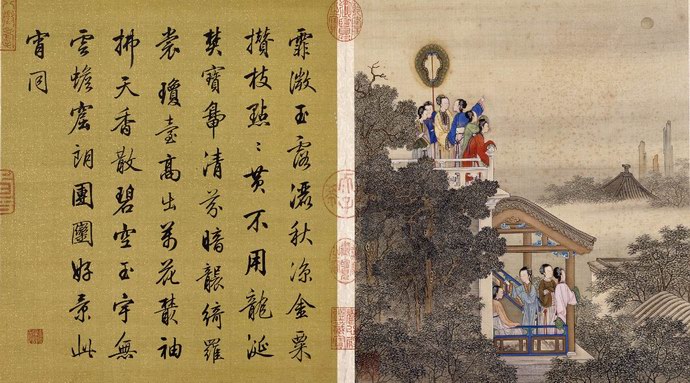 霏微玉露濕秋涼金粟
攢枝點〻黃不用龍涎
焚寶鼎清芬暗襲綺羅
裳瓊臺高出萬花叢袖
拂天香散碧空玉宇無
雲蟾窟朗團圞好景此
宵同